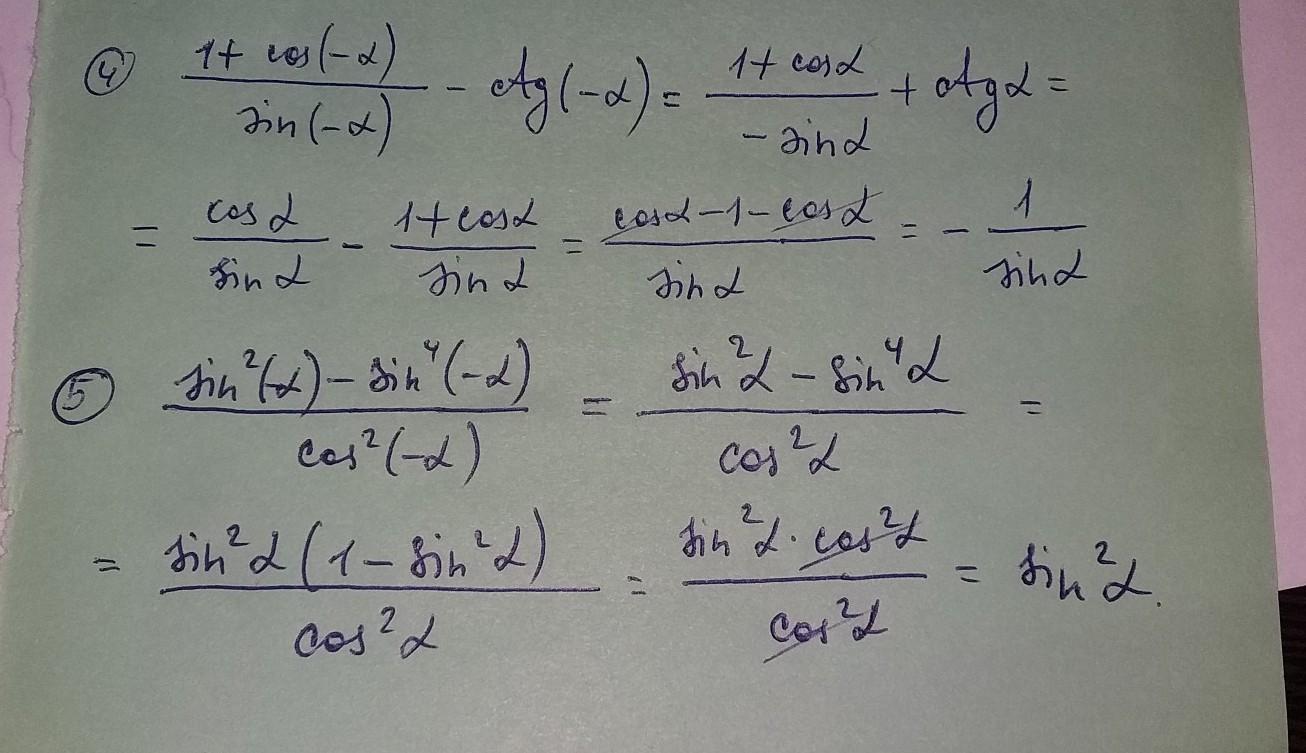 ④ (1 + cos(-α))/(sin(-α)) - ctg(-α) = (1 + cosα)/(-sinα) + ctgα =
= (cosα)/(sinα) - (1 + cosα)/(sinα) = (cosα - 1 - cosα)/(sinα) = - 1/(sinα)
⑤ (sin²(-α) - sin⁴(-α))/(cos²(-α)) = (sin²α - sin⁴α)/(cos²α) =
= (sin²α(1 - sin²α))/(cos²α) = (sin²α · cos²α)/(cos²α) = sin²α.